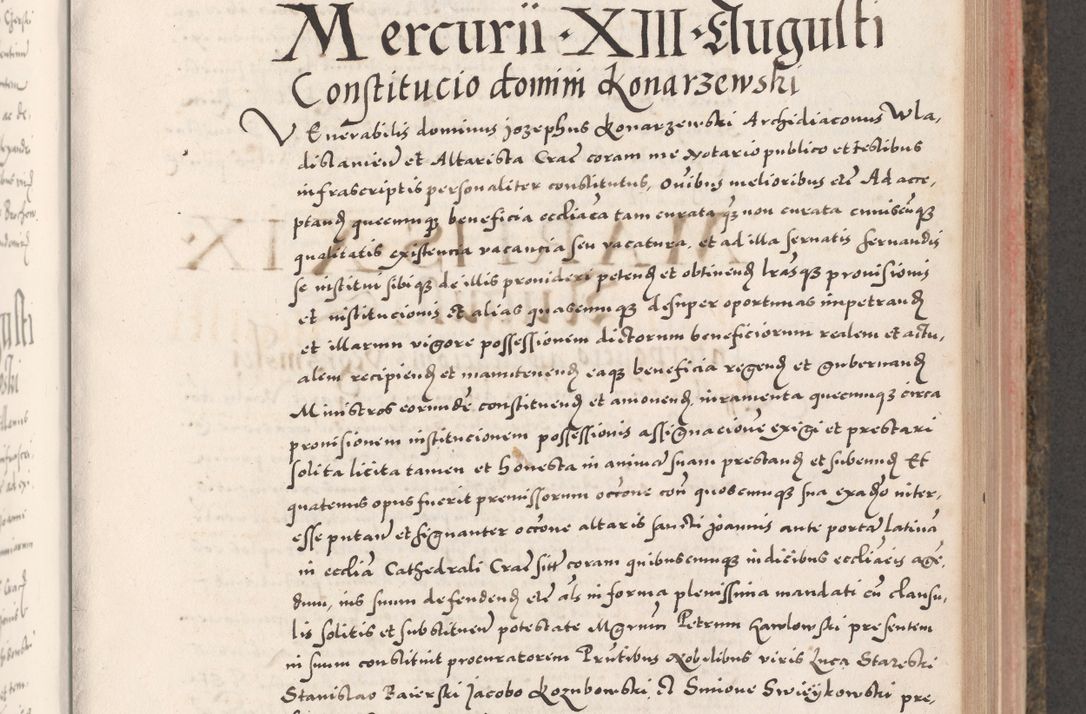 Mercurii · XIII · Augusti
Constitucio domini Konarzewski
VEnerabilis dominus Jozephus Konarzewski Archidiaconus Wla,
dislavien et Altarista Crac coram me Notario publico et testibus
infrascriptis personaliter constitutus, Omibus melioribus etc Ad acce,
ptand quecumq beneficia ecclīaca tam curata q non curata cuiuscūq
qualitatis existencia vacancia seu vacatura, et ad illa servatis servandis
se institui sibiq de illis provideri petend et obtinend lrasq provisionis
et institucionis et alias quascumq desuper oportunas impetrand
et illarum vigore possessionem dictorum beneficiorum realem et actu,
alem recipiend et manutenend eaq beneficia regend et gubernand
Ministros eorundē constituend et amovend, iuramenta quecumq circa
provisionem institucionem possessionis assignacione exigi et prestari
solita licita tamen et honesta in animā suam prestand et subeund Et
quatenus opus fuerit premissorum occone con quoscumq sua
esse putan et signanter occōne altaris sancti Joannis ante portā latinā
in ecclīa Cathedrali Crac sitt coram quibuscumq iudicibus ecclīacis agē,
dum, ius suum defendend etc als in forma plenissima mandati cū clausu,
lis solitis et substituen potestate Mgrum Petrum Kawlowski presentem
in suum constituit procuratorem Prntibus Nobilibus viris Luca Starzeski
Stanislao Baierski Jacobo Kozubowski, et Simone Swieykowski pre,